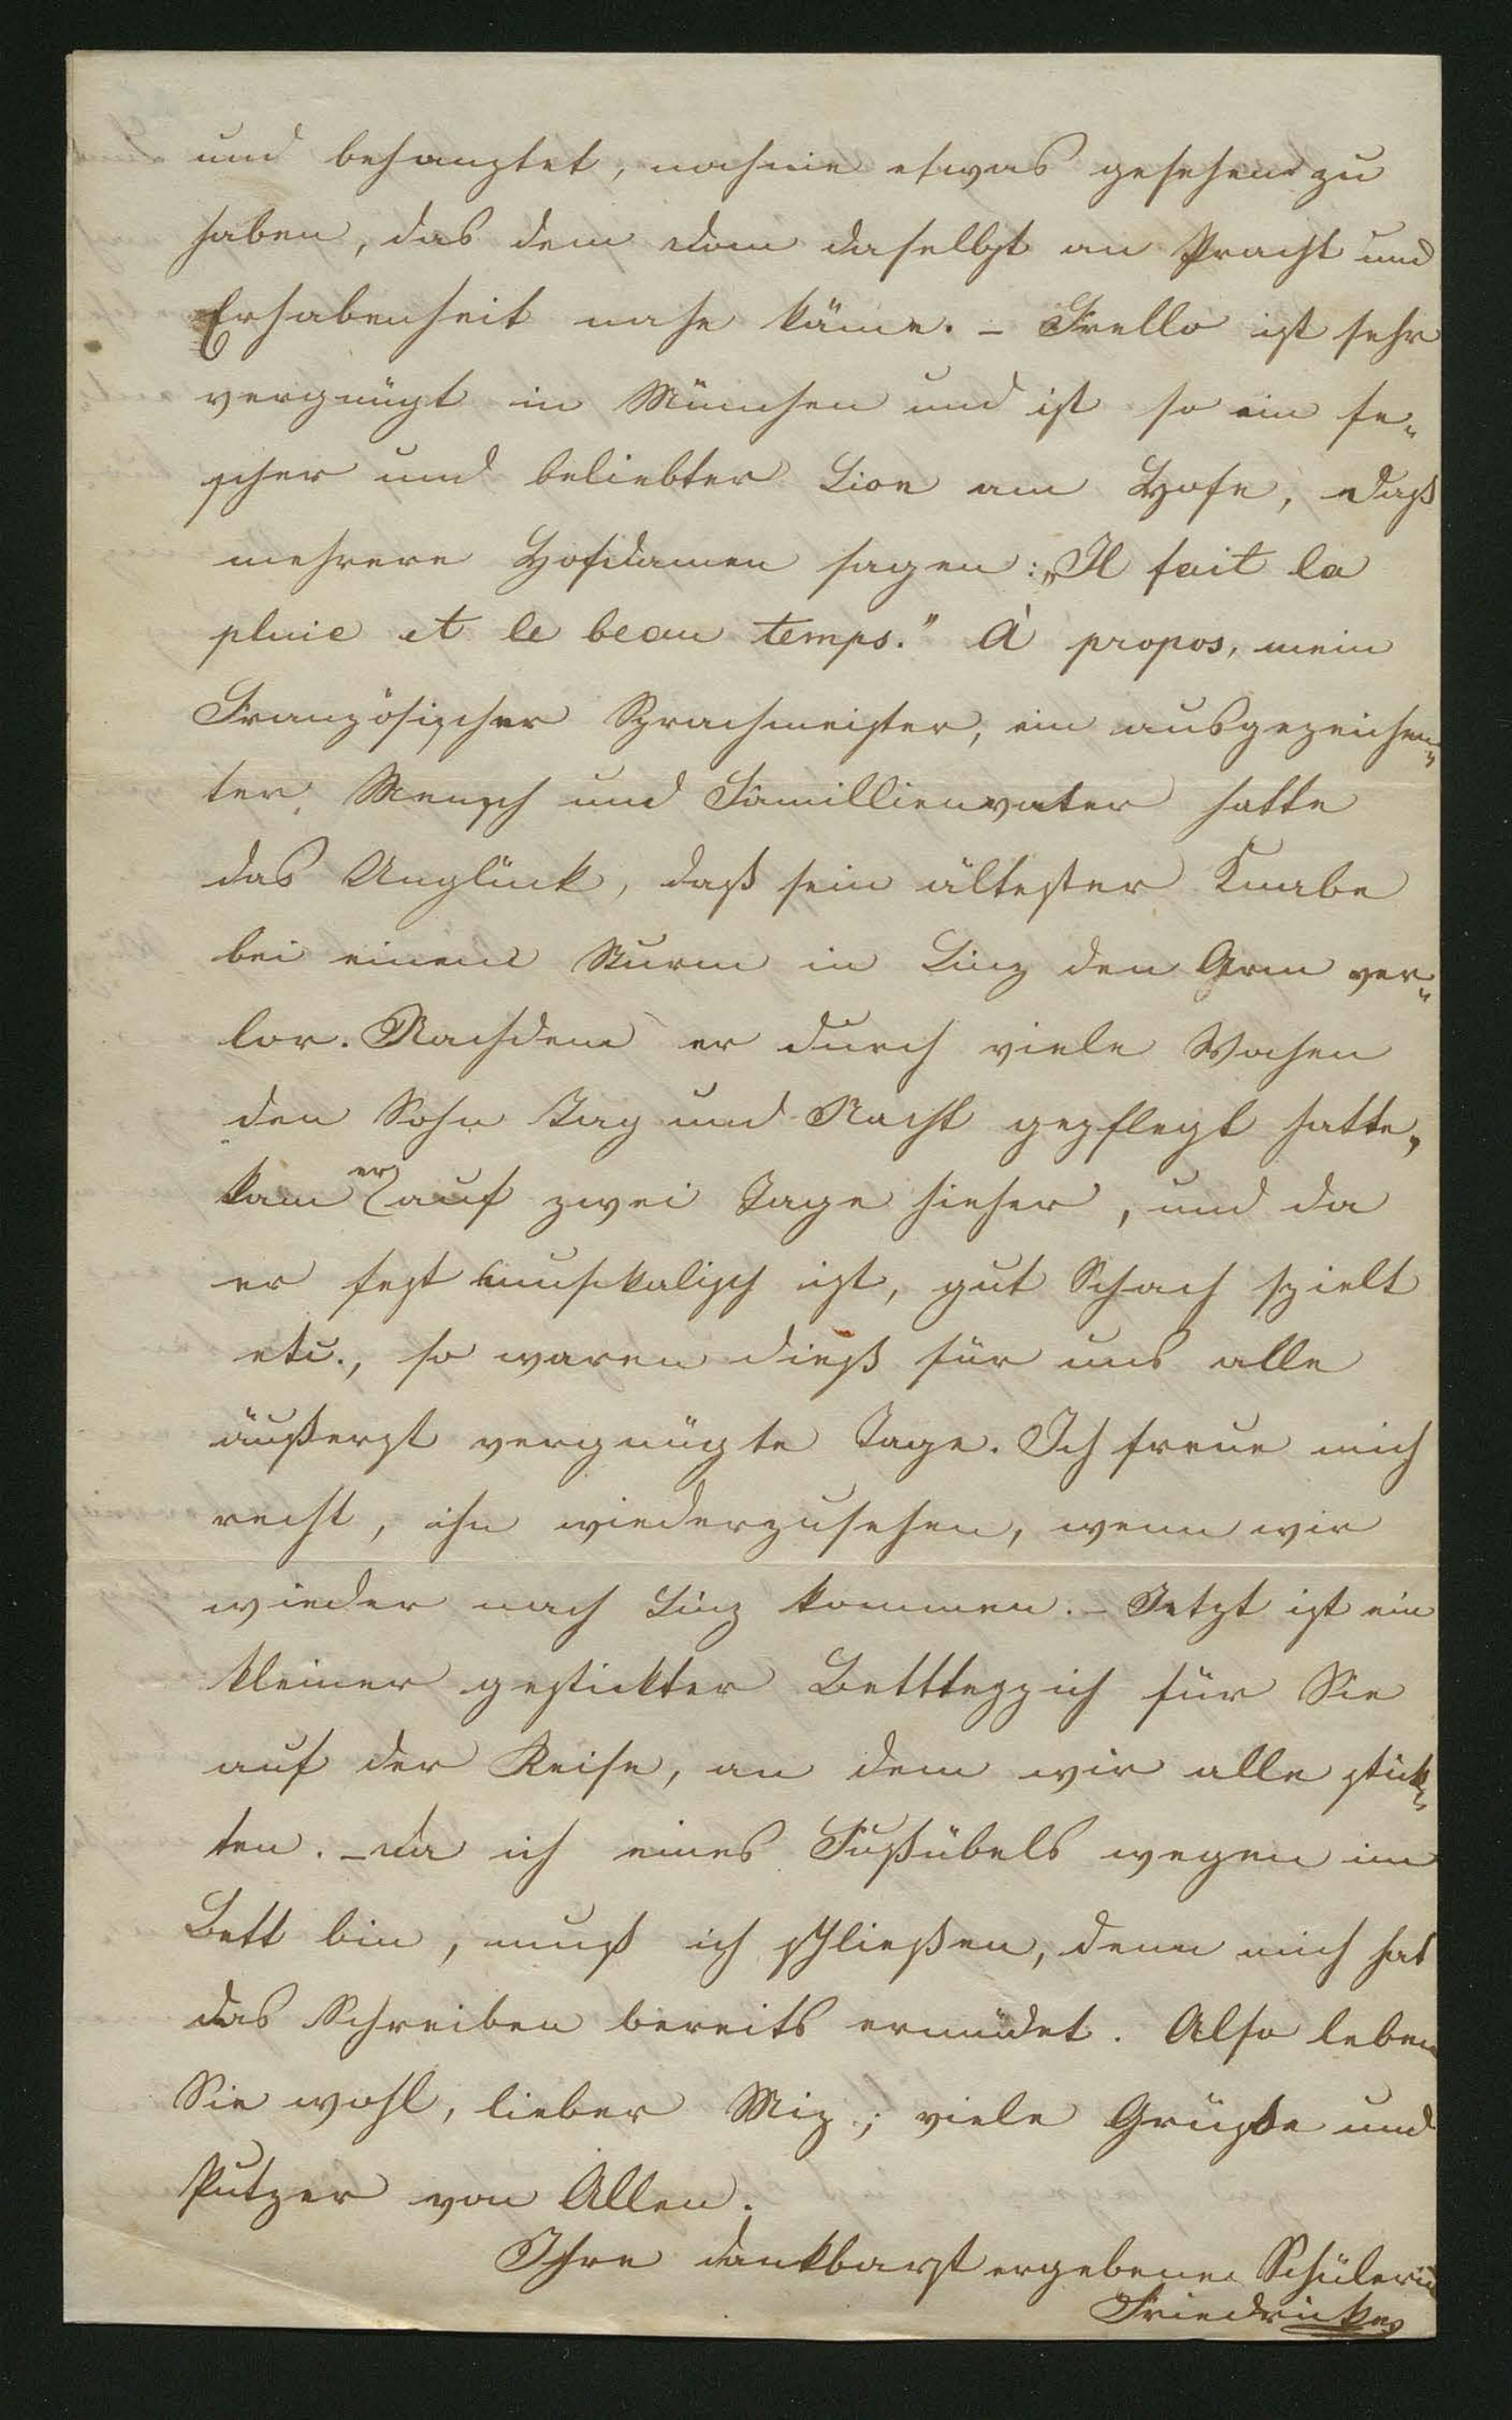 und behauptet, noch nie etwas gesehen zu
haben, das dem Dom daselbst an Pracht und
Erhabenheit nahe käme. – Frello ist sehr
vergnügt in München und ist so ein fe-
scher und beliebter Lion am Hofe, daß
mehrere Hofdamen sagen: „Il fait la
pluie et le beau temps.“ À propos, mein
Französischer Sprachmeister, ein ausgezeichne-
ter Mensch und Familienvater hatte
das Unglück, daß sein ältester Knabe
bei einem Sturm in Linz den Arm ver-
lor. Nachdem er durch viele Wochen
den Sohn Tag und Nacht gepflegt hatte,
kam er auf zwei Tage hieher, und da
er sehr musikalisch ist, gut Schach spielt
etc., so waren dieß für uns alle
äußerst vergnügte Tage. Ich freue mich
recht, ihn wiederzusehen, wenn wir
wieder nach Linz kommen. – Jetzt ist ein
kleiner gestickter Bettteppich für Sie
auf der Reise, an dem wir alle stick-
ten. – Da ich eines Fußübels wegen im
Bett bin, muß ich schließen, denn mich hat
das Schreiben bereits ermüdet. Also leben
Sie wohl, lieber Miz; viele Grüße und
Putzer von Allen.
Ihre dankbarst ergebene Schülerin
Friedricke